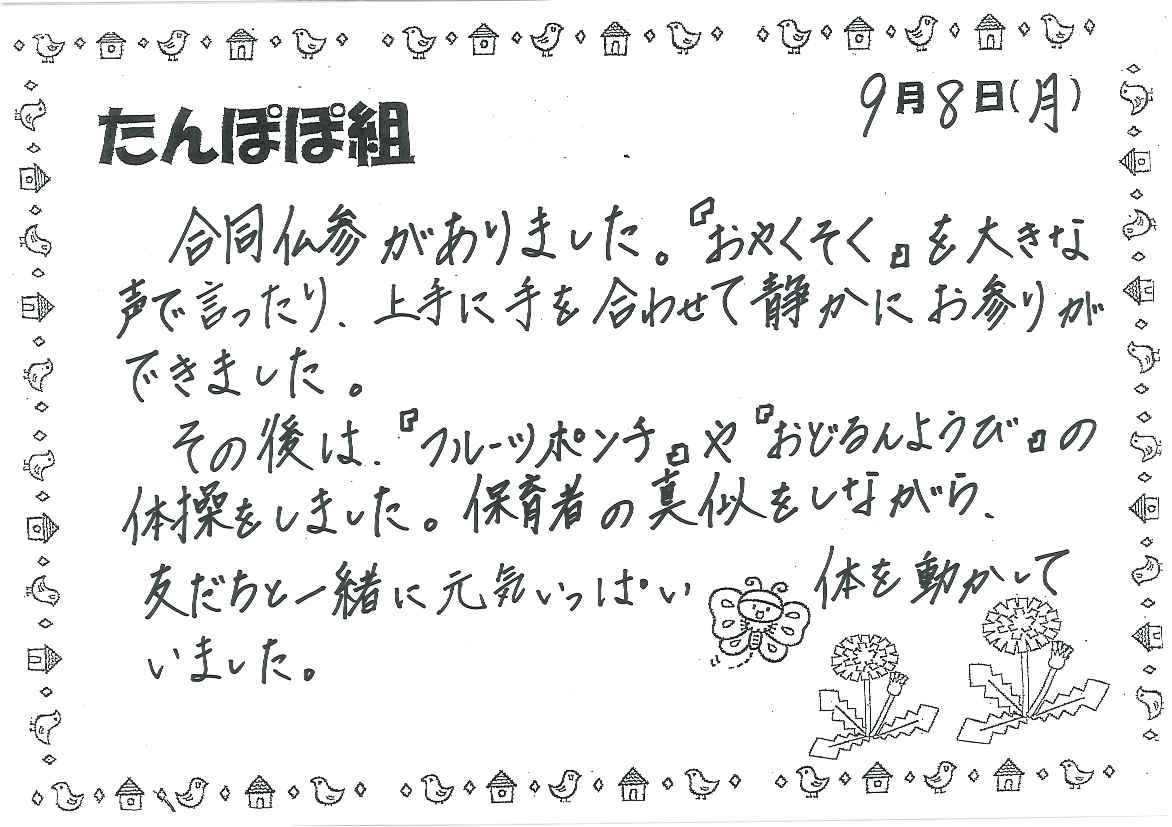 9月8日(月)
たんぽぽ組
合同仏参がありました。『おやくそく』を大きな
声で言ったり、上手に手を合わせて静かにお参りが
できました。
その後は、『フルーツポンチ』や『おどるんようび』の
体操をしました。保育者の真似をしながら、
友だちと一緒に元気いっぱい 体を動かして
いました。